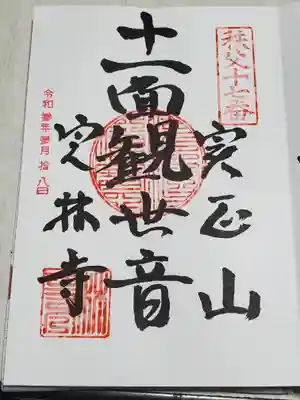 秩父十七番
実正山
十一面観世音
定林寺
令和
月拾八日